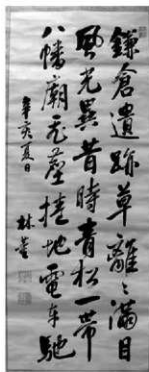 鎌倉遺跡草離離滿目
風光異昔時青松一帶
八幡廟花塵捲地電車馳
辛亥夏日
林董